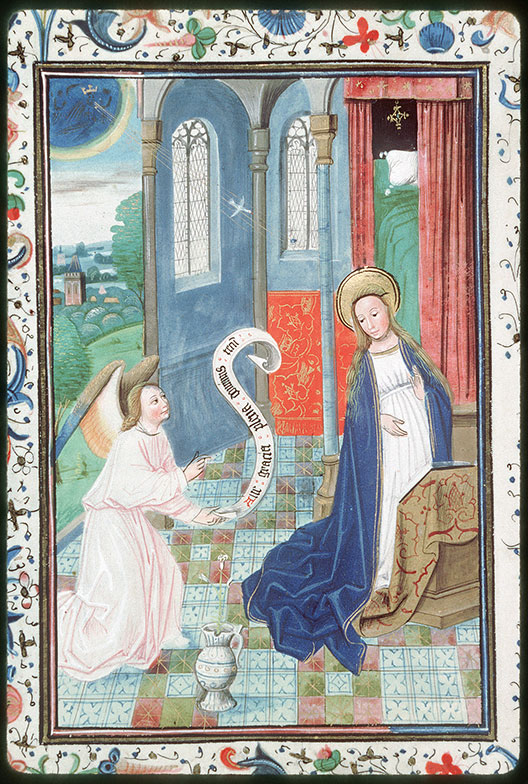 Ave gracia plena dominus tecū